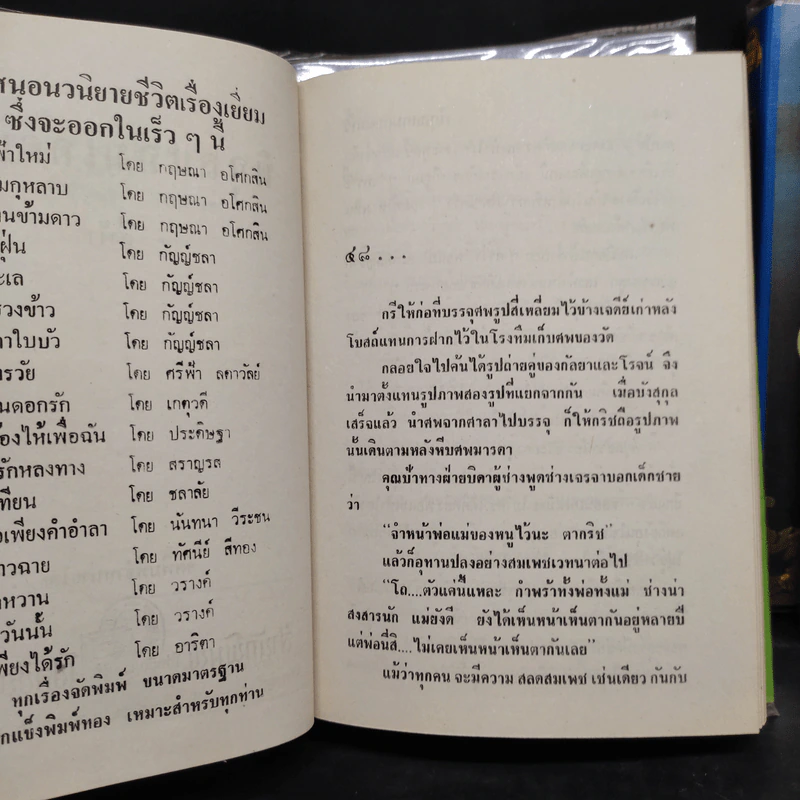 สนอนวนิยายชีวิตเรื่องเยี่ยม
ซึ่งจะออกในเร็ว ๆ นี้
ฟ้าใหม่ โดย กฤษณา อโศกสิน
มกุหลาบ โดย กฤษณา อโศกสิน
นข้ามดาว โดย กฤษณา อโศกสิน
ฝุ่น โดย กัญญ์ชลา
ะเล โดย กัญญ์ชลา
รวงข้าว โดย กัญญ์ชลา
าใบบัว โดย กัญญ์ชลา
ารวัย โดย ศรีฟ้า ลดาวัลย์
นดอกรัก โดย เกตุวดี
้องไห้เพื่อฉัน โดย ประดิษฐา
รักหลงทาง โดย สราญรส
เทียน โดย ชลาลัย
อเพียงคำอำลา โดย นันทนา วีระชน
าวฉาย โดย ทัศนีย์ สีทอง
หวาน โดย วรางค์
วันนั้น โดย วรางค์
เพียงได้รัก โดย อาริตา
ทุกเรื่องจัดพิมพ์ ขนาดมาตรฐาน
กแข็งพิมพ์ทอง เหมาะสำหรับทุกท่าน
๔๘ . . .
กรีให้ก่อที่บรรจุศพรูปสี่เหลี่ยมไว้ข้างเจดีย์เก่าหลัง
โบสถ์แทนการฝากไว้ในโรงทึมเก็บศพของวัด
กลอยใจไปค้นได้รูปถ่ายคู่ของกัลยาและโรจน์ จึง
นำมาตั้งแทนรูปภาพสองรูปที่แยกจากกัน เมื่อบังสุกุล
เสร็จแล้ว นำศพจากศาลาไปบรรจุ ก็ให้กริชถือรูปภาพ
นั้นเดินตามหลังหีบศพมารดา
คุณป้าทางฝ่ายบิดาผู้ช่างพูดช่างเจรจาบอกเด็กชาย
ว่า
“จำหน้าพ่อแม่ของหนูไว้นะ ตากริช”
แล้วก็อุทานปลงอย่างสมเพชเวทนาต่อไป
“โถ....ตัวแค่นี้แหละ กำพร้าทั้งพ่อทั้งแม่ ช่างน่า
สงสารนัก แม่ยังดี ยังได้เห็นหน้าเห็นตากันอยู่หลายปี
แต่พ่อนี่สิ....ไม่เคยเห็นหน้าเห็นตากันเลย”
แม้ว่าทุกคน จะมีความ สลดสมเพช เช่นเดียว กันกับ